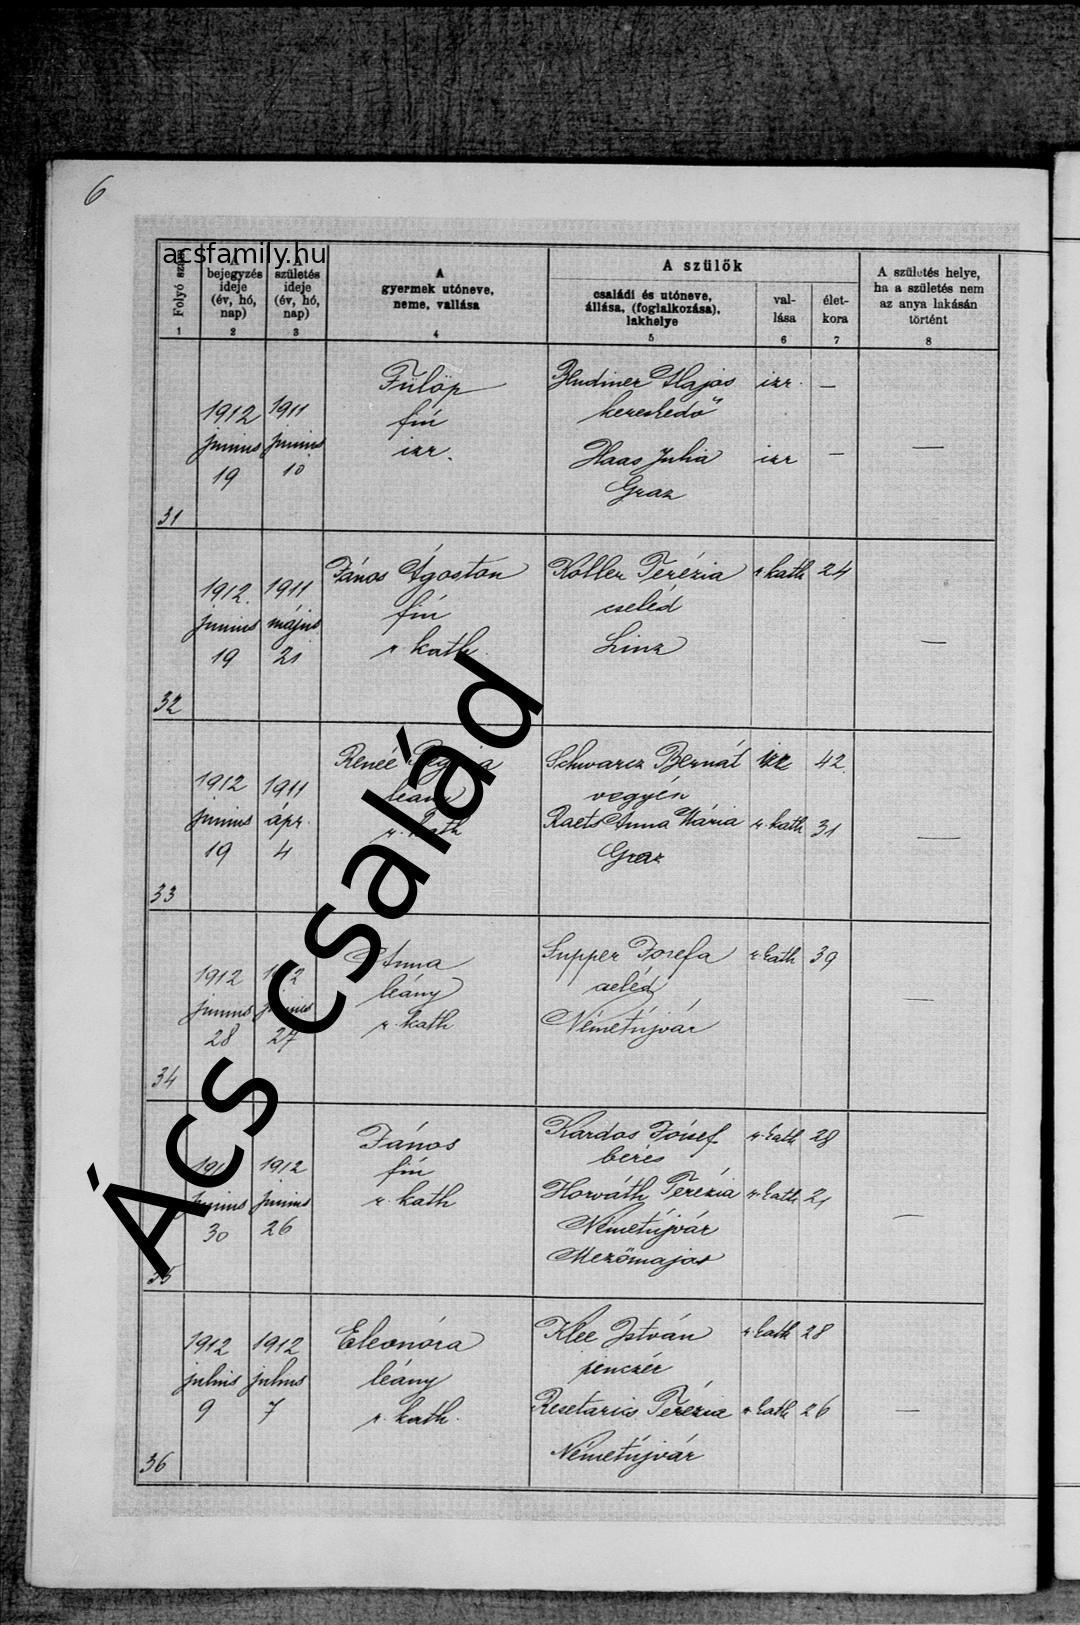 6
acsfamily.hu
Folyó szám
A bejegyzés ideje (év, hó, nap)
A születés ideje (év, hó, nap)
A gyermek utóneve, neme, vallása
A szülők
családi és utóneve, állása, (foglalkozása), lakhelye
val-
lása
élet-
kora
A születés helye, ha a születés nem az anya lakásán történt
1 2 3 4 5 6 7 8
31
1912 junius 19
1911 junius 10
Fülöp
fiú
izr.
Lajos izr. —
kereskedő
Haas Julia izr —
Graz
—
32
1912. junius 19
1911 május 21
János Ágoston
fiú
r. kath.
Koller Terézia r. kath 24
cseléd
Linz
—
33
1912 junius 19
1911 ápr. 4
Reneé
leány
r. kath
Schwarcz Bernát izr 42
vegyén
Raets Anna Mária r. kath 31
Graz
—
34
1912 junius 28
1912 junius 27
Anna
leány
r. kath
Supper Josefa r. kath 39
cseléd
Németújvár
—
35
191
junius 30
1912 junius 26
János
fiú
r. kath
Kardos József r. kath 28
béres
Horváth Terézia r. kath 21
Németújvár
Mezőmajor
—
36
1912 julius 9
1912 julius 7
Eleonóra
leány
r. kath.
Klee István r. kath 28
pinczér
Resetarics Terézia r. kath 26
Németújvár
—
Ács család